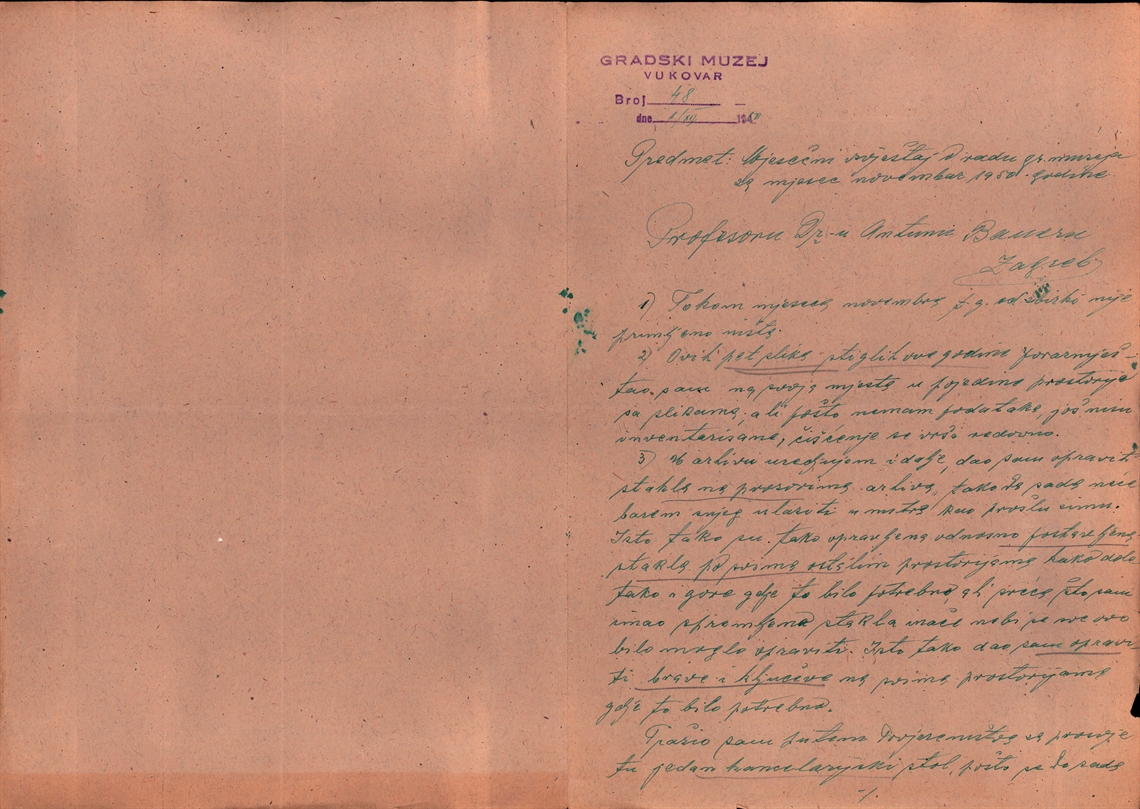 GRADSKI MUZEJ
VUKOVAR
Broj 48
dne 1/XII 1950
Predmet: Mjesečni izvještaj o radu gr. muzeja
za mjesec novembar 1950. godine
Profesoru Dr-u Antunu Baueru
Zagreb
1) Tokom mjeseca novembra t. g. od zbirki nije
primljeno ništa.
2) Ovih pet slika stiglih ove godine porazmješ-
tao sam na svoja mjesta u pojedine prostorije
sa slikama, ali pošto nemam podataka, još nisu
inventarisane, čišćenje se vrši redovno.
3) U arhivu uredjujem i dalje, dao sam opraviti
stakla na prozorima arhiva, tako da sada neće
barem snijeg ulaziti u nutra kao prošlu zimu.
Isto tako su, tako opravljena odnosno postavljena
stakla po svima ostalim prostorijama kako dole
tako i gore gdje to bilo potrebno, ali sreća što sam
imao spremljena stakla inače nebi se sve ovo
bilo moglo opraviti. Isto tako dao sam opravi-
ti brave i ključeve na svima prostorijama
gdje to bilo potrebno.
Tražio sam putem Povjereništva za prosvje
tu jedan kancelarijski stol, pošto se do sada
./.